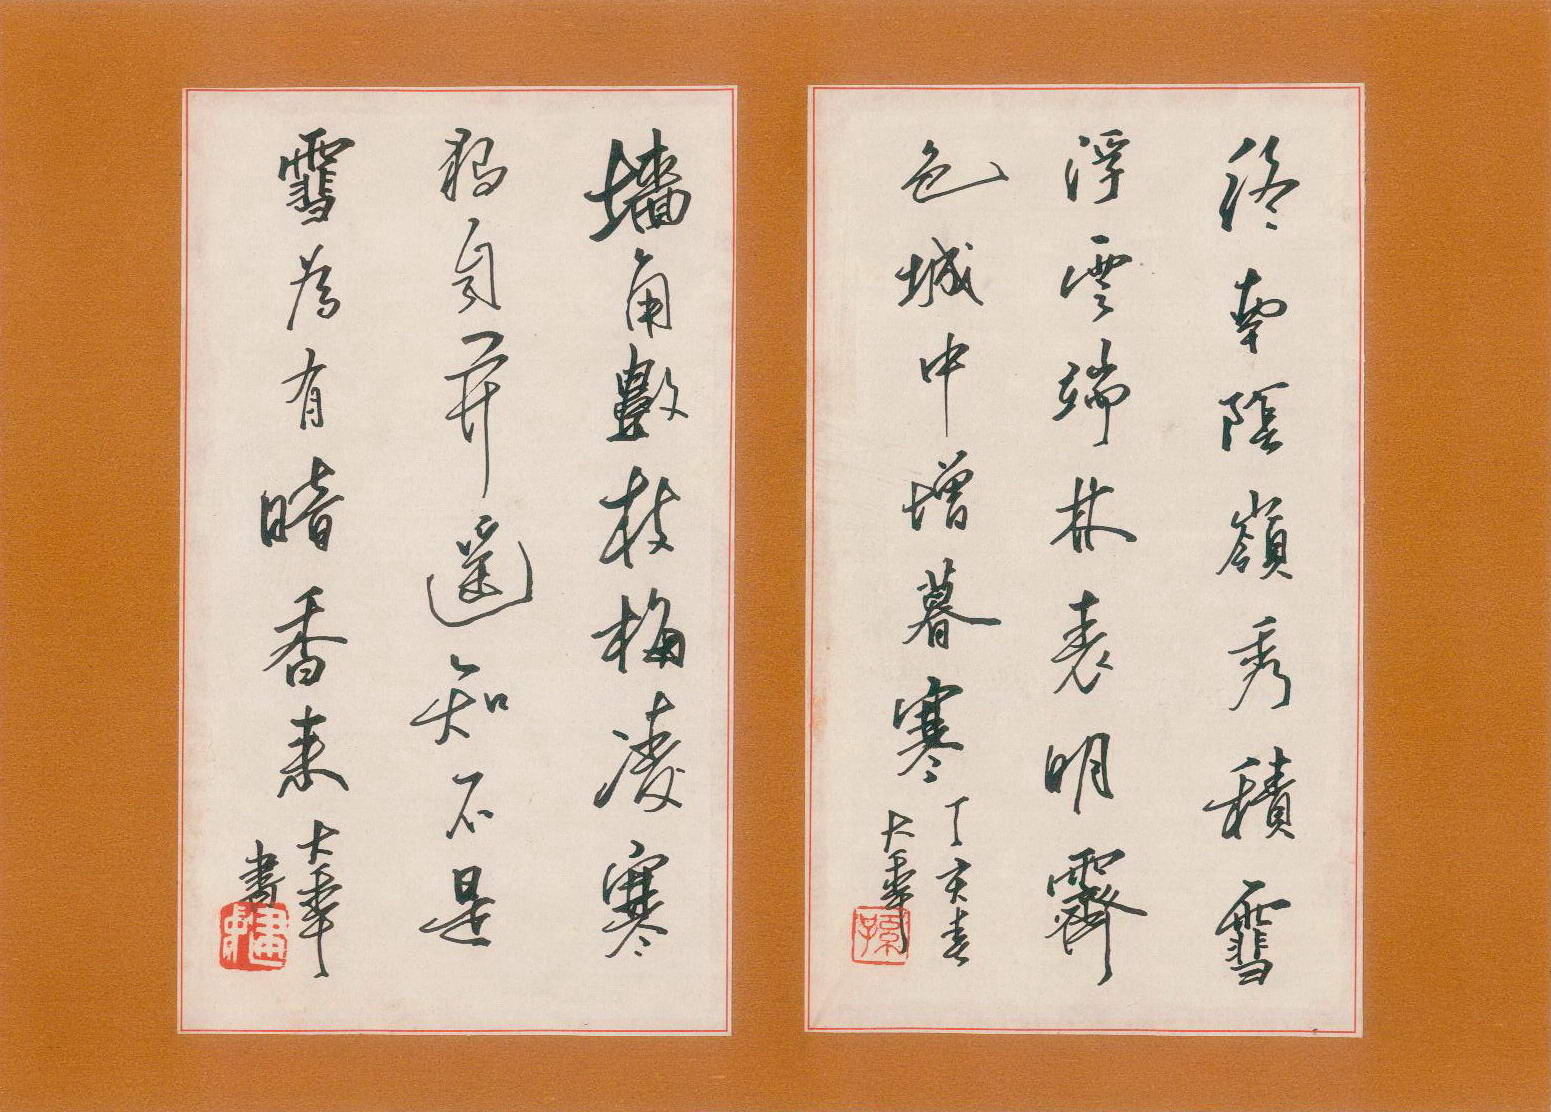 終南陰嶺秀積雪
浮雲端林表明霽
色城中增暮寒
丁亥春
大華
孫
墻角數枝梅凌寒
獨自开遥知不是
雪為有暗香来
大華
書